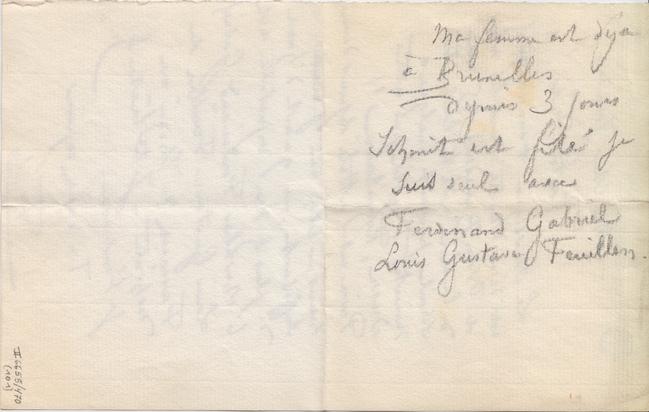 Ma femme est déja
à Bruxelles
depuis 3 jours
Schmit est filé je
suis seul avec
Ferdinand Gabriel
Louis Gustave Feuillen.
II 6655/470
(101)